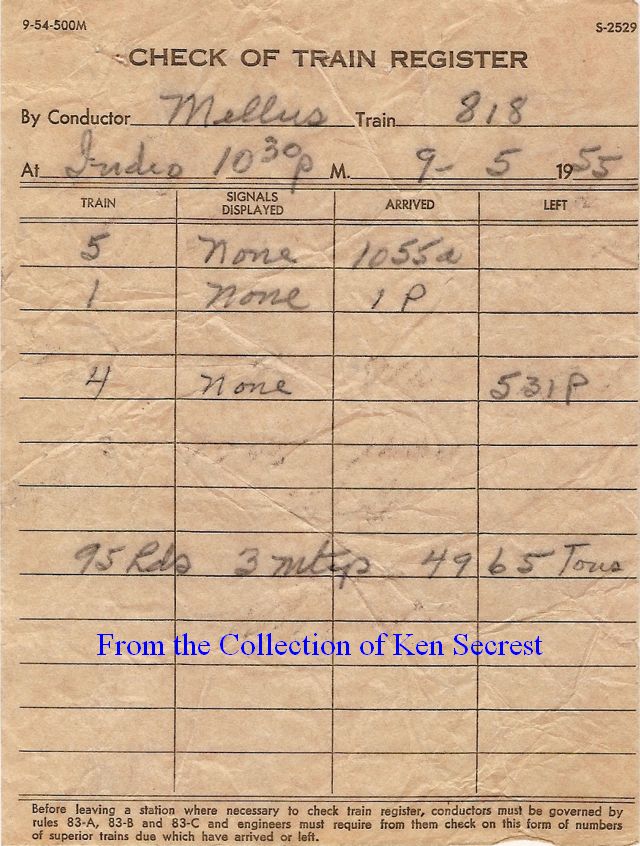 9-54-500M S-2529
CHECK OF TRAIN REGISTER
By Conductor Mellus Train 818
At Indio 10 30 p M. 9- 5 1955
TRAIN SIGNALS DISPLAYED ARRIVED LEFT
5 None 1055a
1 None 1 P
4 None 531P
95 Lds 3 mtys 4965 Tons
From the Collection of Ken Secrest
Before leaving a station where necessary to check train register, conductors must be governed by
rules 83-A, 83-B and 83-C and engineers must require from them check on this form of numbers
of superior trains due which have arrived or left.